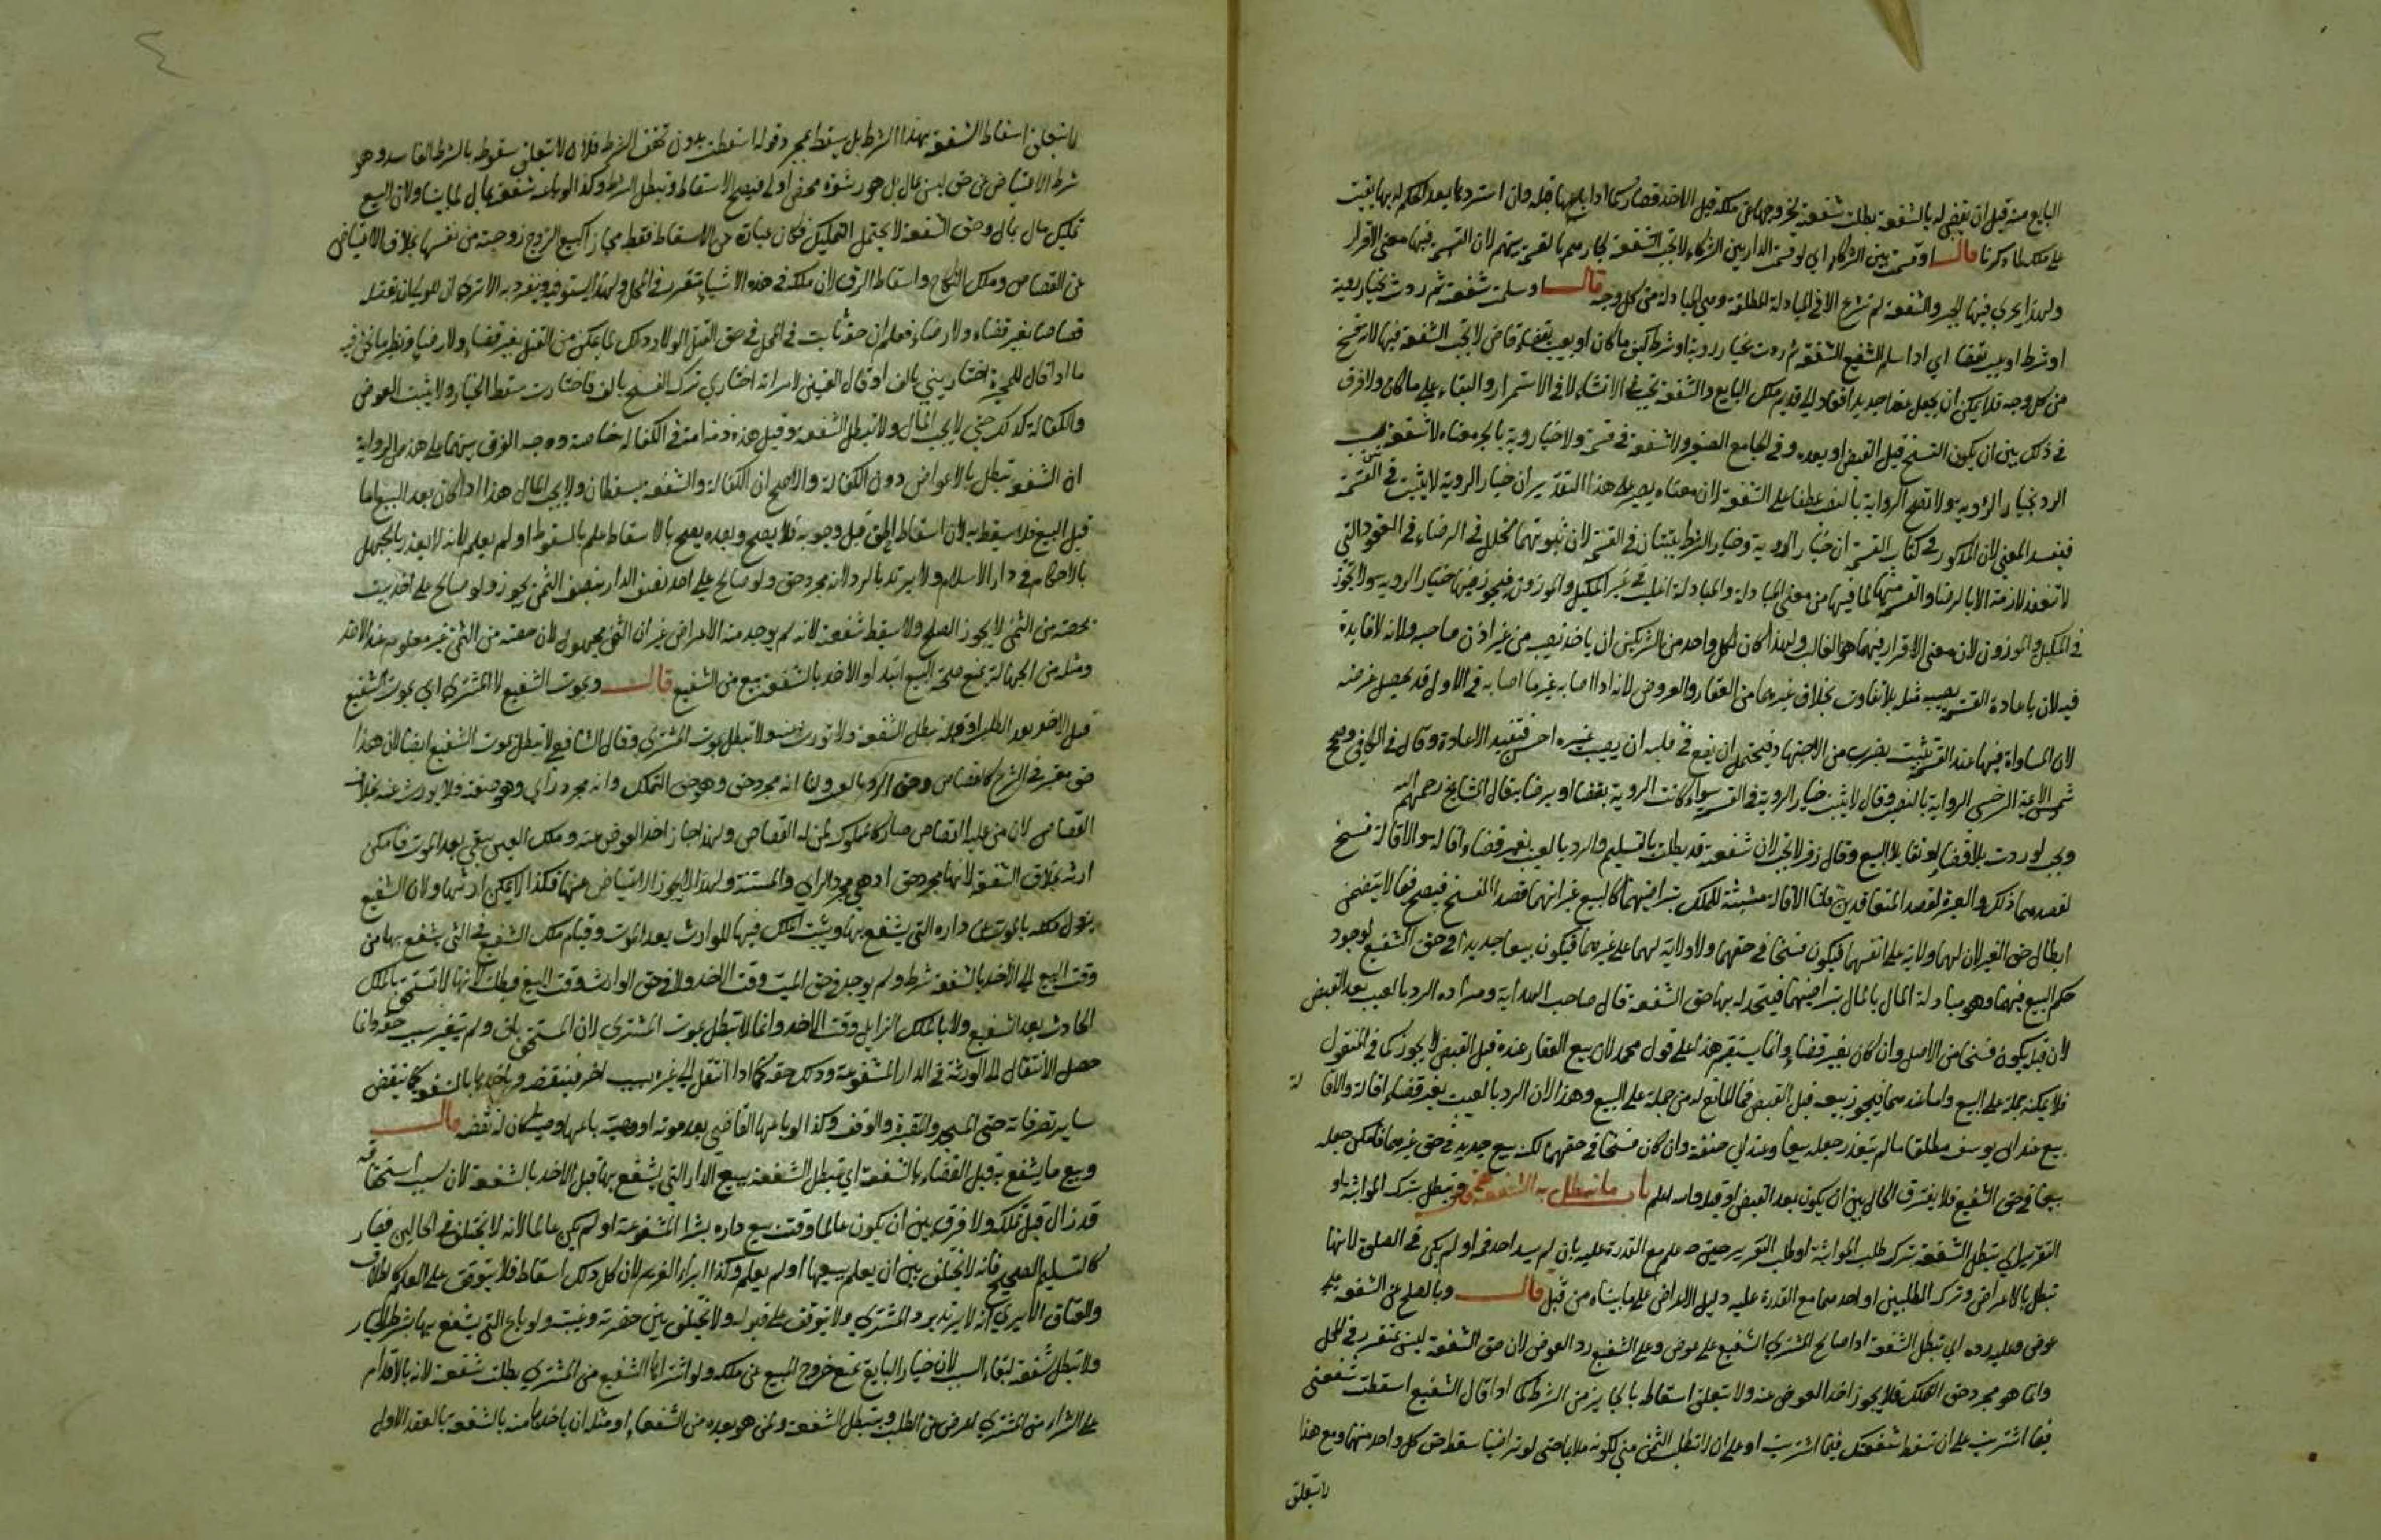 البايع منه قبل ان يقضى له بالشفعة بطلت شفعته لخروجها عن ملكه قبل الاخذ فصار كما اذا باعها قبله وان استردها بعد الحكم له بها بقيت
على ملكه لما ذكرنا قال او قسمت بين الشركاء اي لو قسمت الدار بين الشركاء لا تجب الشفعة لجارهم بالقسمة بينهم لان القسمة فيها معنى الاقرار
ولهذا يجري فيها الجبر والشفعة لم تشرع الا في المبادلة المطلقة وهي المبادلة من كل وجه قال او سلمت شفعته ثم ردت بخيار رؤية
او شرط او عيب بقضاء اي اذا سلم الشفيع الشفعة ثم ردت بخيار رؤية او شرط كيف ما كان او بعيب بقضاء قاض لا تجب الشفعة فيها لانه فسخ
من كل وجه فلا يمكن ان يجعل عقدا جديدا فعاد الى قديم ملك البايع والشفعة تجب في الانشاء لا في الاستمرار والبقاء على ما كان ولا فرق
في ذلك بين ان يكون الفسخ قبل القبض او بعده وفي الجامع الصغير ولا شفعة في قسمة ولا خيار روية بالجر معناه لا شفعة بسبب
الرد بخيار الرؤية ولا تصح الرواية بالفتح عطفا على الشفعة لان معناه يصير على هذا التقدير ان خيار الروية لا يثبت في القسمة
فيفسد المعنى لان المذكور في كتاب القسمة ان خيار الروية وخيار الشرط يثبتان في القسمة لان ثبوتهما لخلل في الرضاء في العقود التي
لا تنعقد لازمة الا بالرضا والقسمة منها لما فيها من معنى المبادلة والمبادلة اغلب في غير المكيل والموزون فيجوز فيها خيار الروية ولا يجوز
في المكيل والموزون لان معنى الاقرار فيهما هو الغالب ولهذا كان لكل واحد من الشريكين ان ياخذ نصيبه من غير اذن صاحبه ولانه لا فايدة
فيه لان باعادة القسمة يصيبه مثله بلا تفاوت بخلاف غيرهما من العقار والعروض لانه اذا اصابه غير ما اصابه في الاول قد يحصل غرضه
لان المساواة فيها عند القسمة تثبت بضرب من الاجتهاد فيحتمل ان يقع في قلبه ان يصيب غيره احسن فتفيد الاعادة وقال في الكافي وصحح
شمس الائمة السرخسي الرواية بالنصب وقال لا يثبت خيار الروية في القسمة سواء كانت الروية بقضاء او برضاء يقال المشايخ رحمهم الله
وتجب لو ردت بلا قضاء او تقايلا البيع وقال زفر لا تجب لان شفعته قد بطلت بالتسليم والرد بالعيب بغير قضاء اقالة والاقالة فسخ
لقصدهما ذلك والعبرة لقصد المتعاقدين قلنا الاقالة مثبتة للملك بتراضيهما كالبيع غير انهما قصدا الفسخ فيصح فيما لا يتضمن
ابطال حق الغير لان لهما ولاية على انفسهما فيكون فسخا في حقهما ولا ولاية لهما على غيرهما فيكون بيعا جديدا في حق الشفيع لوجود
حكم البيع فيهما وهو مبادلة المال بالمال بتراضيهما فيتجدد له بهما حق الشفعة قال صاحب الهداية ومراده الرد بالعيب بعد القبض
لان قبله يكون فسخا من الاصل وان كان بغير قضاء وانما يستقيم هذا على قول محمد لان بيع العقار عنده قبل القبض لا يجوز كما في المنقول
فلا يمكن حمله على البيع واما عندهما فيجوز بيعه قبل القبض فما المانع له من حمله على البيع وهذا لان الرد بالعيب بغير قضاء اقالة والاقالة
بيع عند ابي يوسف مطلقا ما لم يتعذر جعله بيعا وعند ابي حنيفة وان كان فسخا في حقهما لكنه بيع جديد في حق غيرهما فامكن جعله
بيعا في حق الشفيع فلا يفترق الحال بين ان يكون بعد القبض او قبله والله اعلم باب ما تبطل به الشفعة قال وتبطل بترك المواثبة او
التقرير اي تبطل الشفعة بترك طلب المواثبة او طلب التقرير حين علم مع القدرة عليه بان لم يسد احد فمه او لم يكن في الصلوة لانها
تبطل بالاعراض وترك الطلبين او احدهما مع القدرة عليه دليل الاعراض على ما بيناه من قبل قال وبالصلح عن الشفعة على
عوض وعليه رده اي تبطل الشفعة اذا صالح المشتري الشفيع على عوض وعلى الشفيع رد العوض لان حق الشفعة ليس بمتقرر في المحل
وانما هو مجرد حق التملك فلا يجوز اخذ العوض عنه ولا يتعلق اسقاطه بالجايز من الشرط كما اذا قال الشفيع اسقطت شفعتي
فيما اشتريت على ان تسقط شفعتك فيما اشتريت او على ان لا تطلب الثمن مني لكونه ملايما حتى لو تراضيا سقط حق كل واحد منهما ومع هذا
لا يتعلق
لا يتعلق اسقاط الشفعة بهذا الشرط بل يسقط بمجرد قوله اسقطت بدون تحقق الشرط فلان لا يتعلق سقوطه بالشرط الفاسد وهو
شرط الاعتياض عن حق ليس بمال بل هو رشوة محض اولى فيصح الاسقاط ويبطل الشرط وكذا لو باعه شفعته بمال لما بينا ولان البيع
تمليك مال بمال وحق الشفعة لا يحتمل التمليك فكان عبارة عن الاسقاط فقط مجازا كبيع الزوج زوجته من نفسها بخلاف الاعتياض
عن القصاص وملك النكاح واسقاط الرق لان ملكه في هذه الاشياء متقرر في المحل ولهذا يستوفيه وينفرد به الا ترى ان للولي ان يقتله
قصاصا بغير قضاء ولا رضاء فعلم ان حقه ثابت في المحل في حق القتل اذ لولا ذلك لما يمكن من القتل بغير قضاء ولا رضا ونظير ما نحن فيه
ما اذا قال للمخيرة اختاريني بالف او قال العنين لامراته اختاري ترك الفسخ بالف فاختارت سقط الخيار ولا يثبت العوض
والكفالة كذلك حتى لا يجب المال ولا تبطل الشفعة وقيل هذه رواية في الكفالة خاصة ووجه الفرق بينهما على هذه الرواية
ان الشفعة تبطل بالاعراض دون الكفالة والاصح ان الكفالة والشفعة يسقطان ولا يجب المال هذا اذا كان بعد البيع اما
قبل البيع فلا يسقط به لان اسقاط الحق قبل وجوبه فلا يصح وبعده يصح بالاسقاط علم بالسقوط او لم يعلم لانه لا يعذر بالجهل
بالاحكام في دار الاسلام ولا يرتد بالرد لانه مجرد حق ولو صالح على اخذ نصف الدار بنصف الثمن يجوز ولو صالح على اخذ بيت
بحصته من الثمن لا يجوز الصلح ولا يسقط شفعته لانه لم يوجد منه الاعراض غير ان الثمن مجهول لان حصته من الثمن غير معلوم عند الاخذ
ومثله من الجهالة يمنع صحة البيع ابتداء والاخذ بالشفعة بيع من الشفيع قال وبموت الشفيع لا المشتري اي بموت الشفيع
قبل الاخذ بعد الطلب او قبله تبطل الشفعة ولا تورث عنه ولا تبطل بموت المشتري وقال الشافعي لا تبطل بموت الشفيع ايضا لان هذا
حق معتبر في الشرع كالقصاص وحق الرد بالعيب ولنا انه مجرد حق وهو حق التملك وانه مجرد راي وهو صفته فلا يورث عنه بخلاف
القصاص لان من عليه القصاص صار كالمملوك لمن له القصاص ولهذا جاز اخذ العوض عنه وملك العين يبقى بعد الموت فامكن
ارثه بخلاف الشفعة لانها مجرد حق اذ هي مجرد الراي والمشيئة ولهذا لا يجوز الاعتياض عنها فكذا لا يمكن ارثها ولان الشفيع
يزول ملكه بالموت عن داره التي يشفع بها ويثبت الملك فيها للوارث بعد الموت وقيام ملك الشفيع في التي يشفع بها من
وقت البيع الى الاخذ بالشفعة شرط ولم يوجد في حق الميت وقت الاخذ ولا في حق الوارث وقت البيع فبطلت لانها لا تستحق بالملك
الحادث بعد الشفيع ولا بالملك الزايل وقت الاخذ وانما لا تبطل بموت المشتري لان المستحق باق ولم يتغير سبب حقه وانما
حصل الانتقال الى الورثة في الدار المشفوعة وذلك حقه كما اذا انتقل الى غيره بسبب اخر فينقضه وياخذها بالشفعة كما ينقض
ساير تصرفاته حتى المسجد والمقبرة والوقف وكذا لو باعها القاضي بعد موته او وصيه باعها او ميت كان له نقضه قال
وببيع ما يشفع به قبل القضاء بالشفعة اي تبطل الشفعة ببيع الدار التي يشفع بها قبل الاخذ بالشفعة لان سبب استحقاقه
قد زال قبل تملكه ولا فرق بين ان يكون عالما وقت بيع داره بشراء المشفوعة او لم يكن عالما لانه لا يختلف في الحالين فصار
كالتسليم الصحيح فانه لا يختلف بين ان يعلم ببيعها او لم يعلم وكذا ابراء الغريم لان كل ذلك اسقاط فلا يتوقف على العلم كالطلاق
والعتاق الا يرى انه لا يرتد برد المشتري ولا يتوقف على قبوله ولا يختلف بين حضرته وغيبته ولو باع التي يشفع بها بشرط الخيار
ولا تبطل شفعته لبقاء السبب لان خيار البايع يمنع خروج المبيع عن ملكه ولو اشتراها الشفيع من المشتري بطلت شفعته لانه بالاقدام
على الشراء من المشتري اعرض عن الطلب وبه تبطل الشفعة ولمن هو بعده من الشفعاء او مثله ان ياخذها منه بالشفعة بالعقد الاول